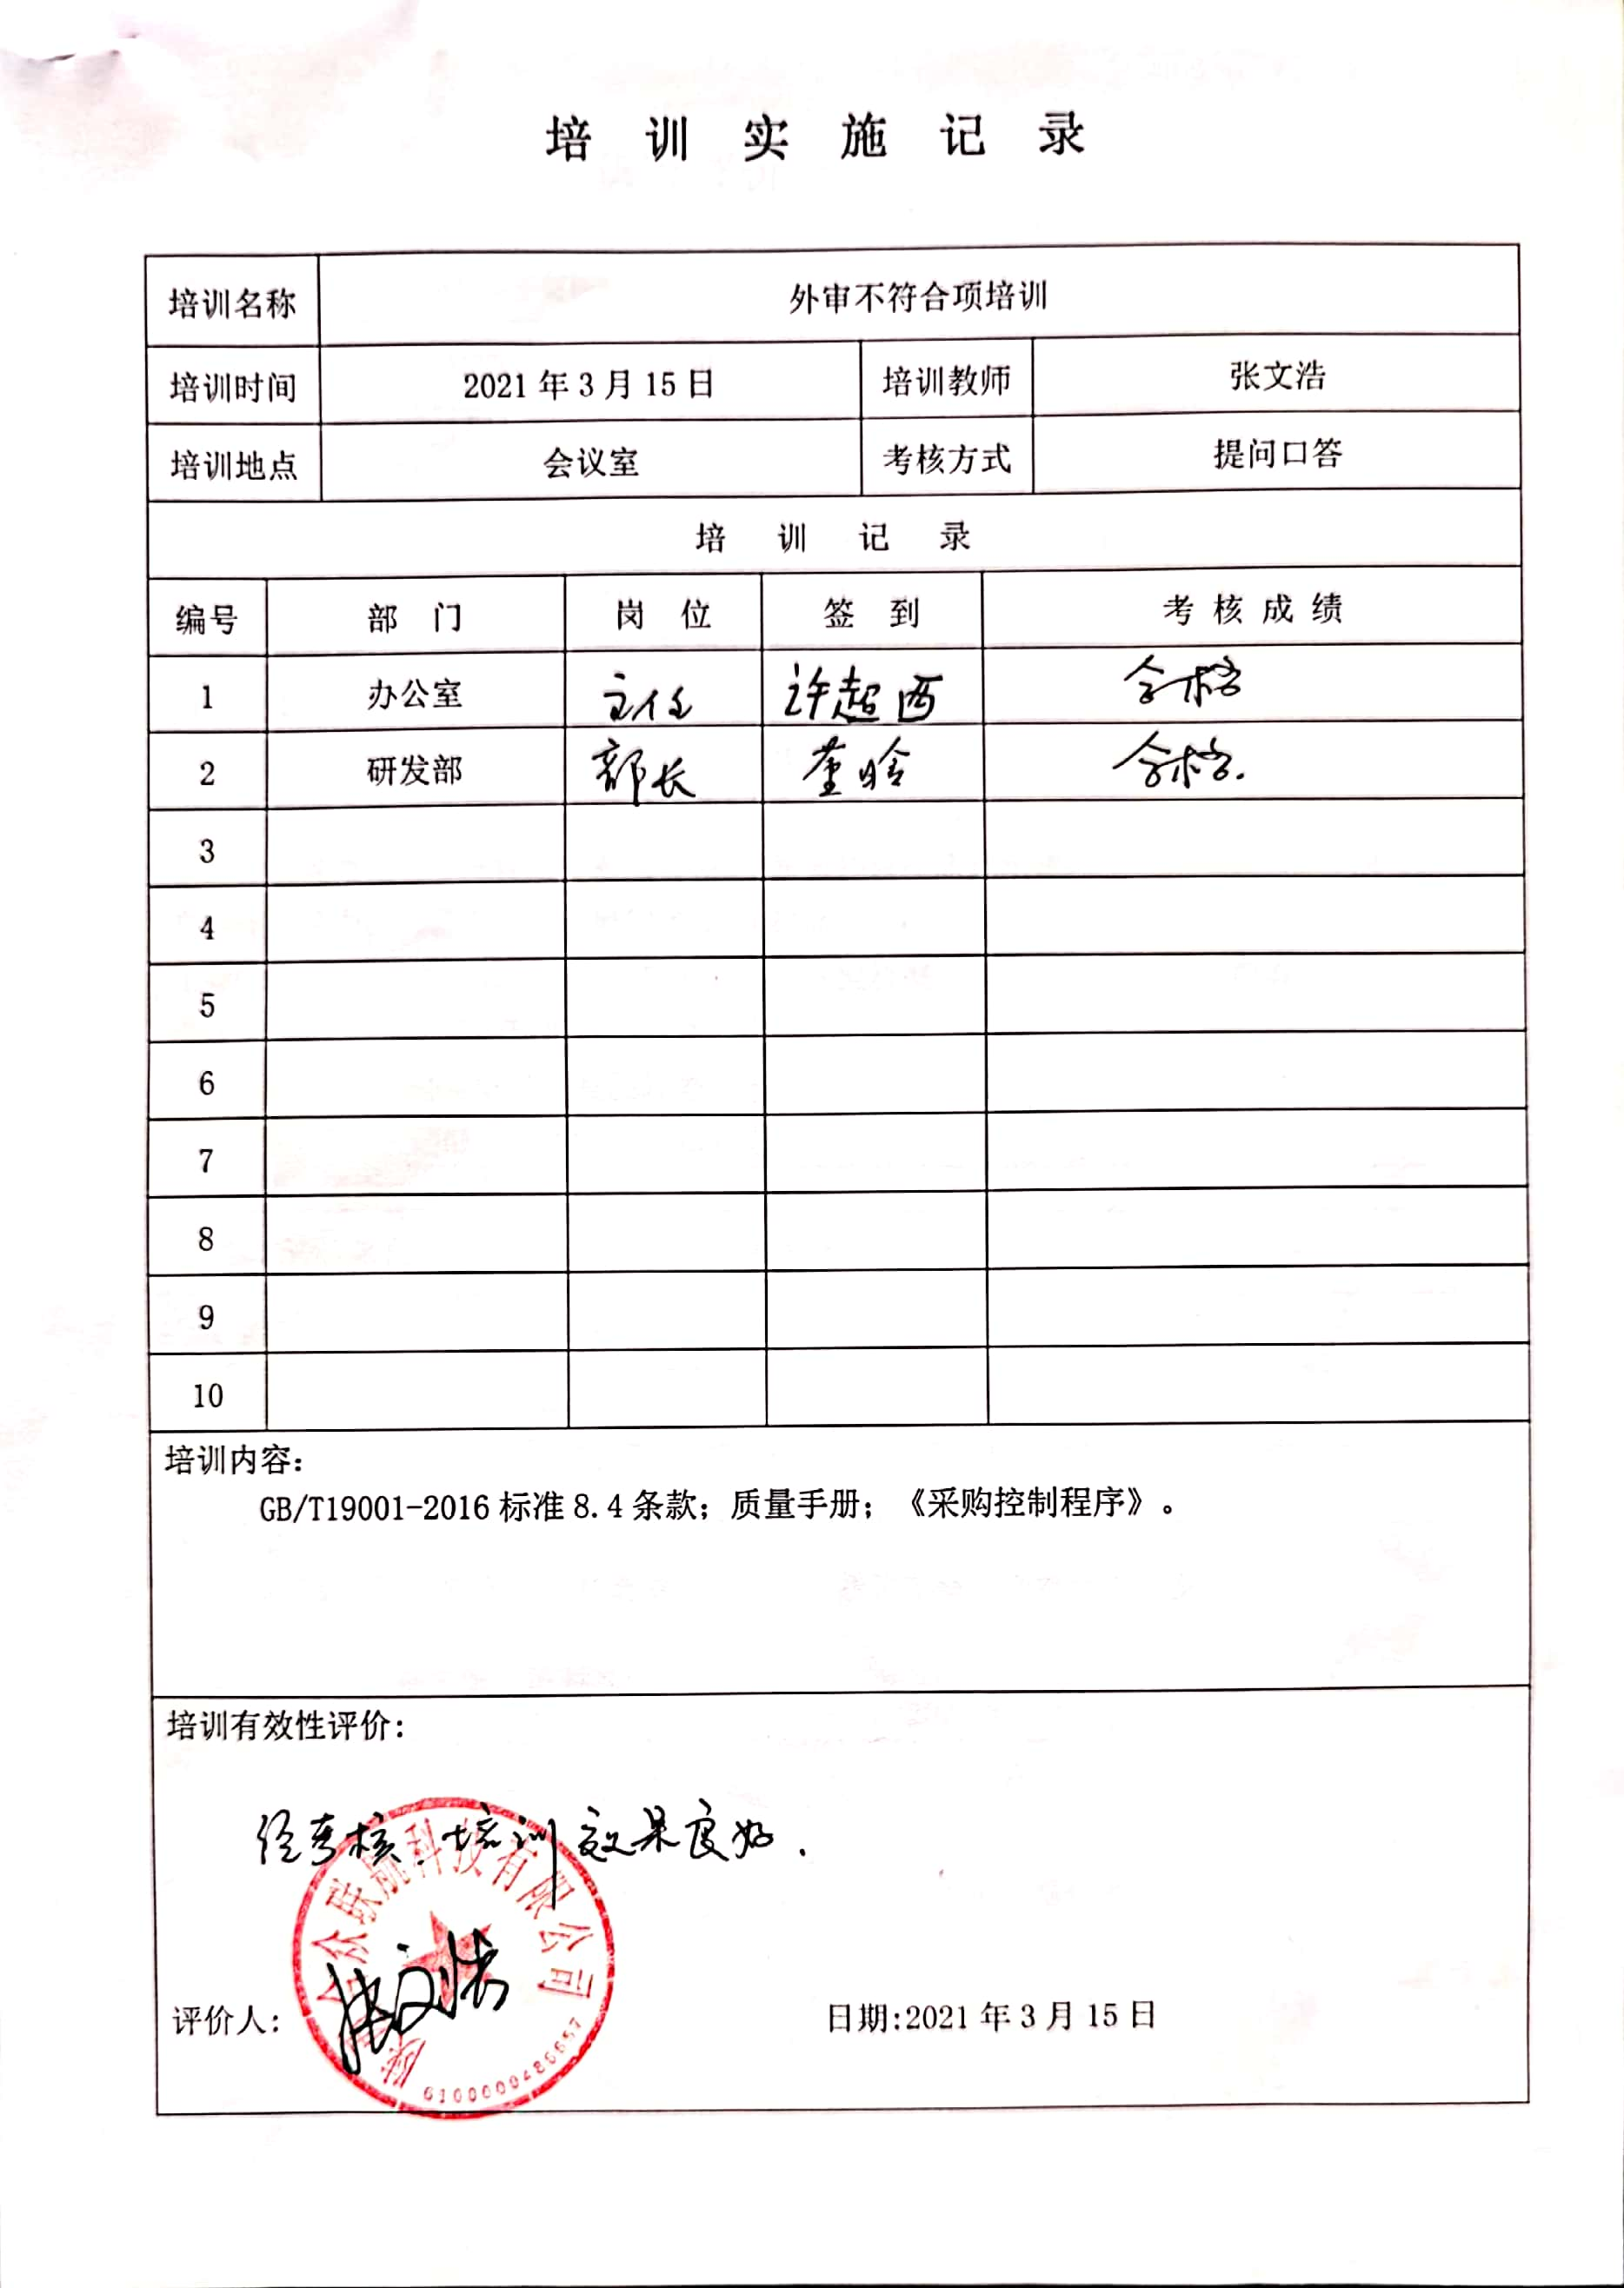 培训实施记录
培训名称 外审不符合项培训
培训时间 2021年3月15日 培训教师 张文浩
培训地点 会议室 考核方式 提问口答
培训记录
编号 部门 岗位 签到 考核成绩
1 办公室 主任 许超西 合格
2 研发部 部长 董晗 合格.
3
4
5
6
7
8
9
10
培训内容:
GB/T19001-2016标准8.4条款；质量手册；《采购控制程序》。
培训有效性评价:
经考核，培训效果良好.
众联航科技有限公司
评价人: 张文浩 日期:2021年3月15日